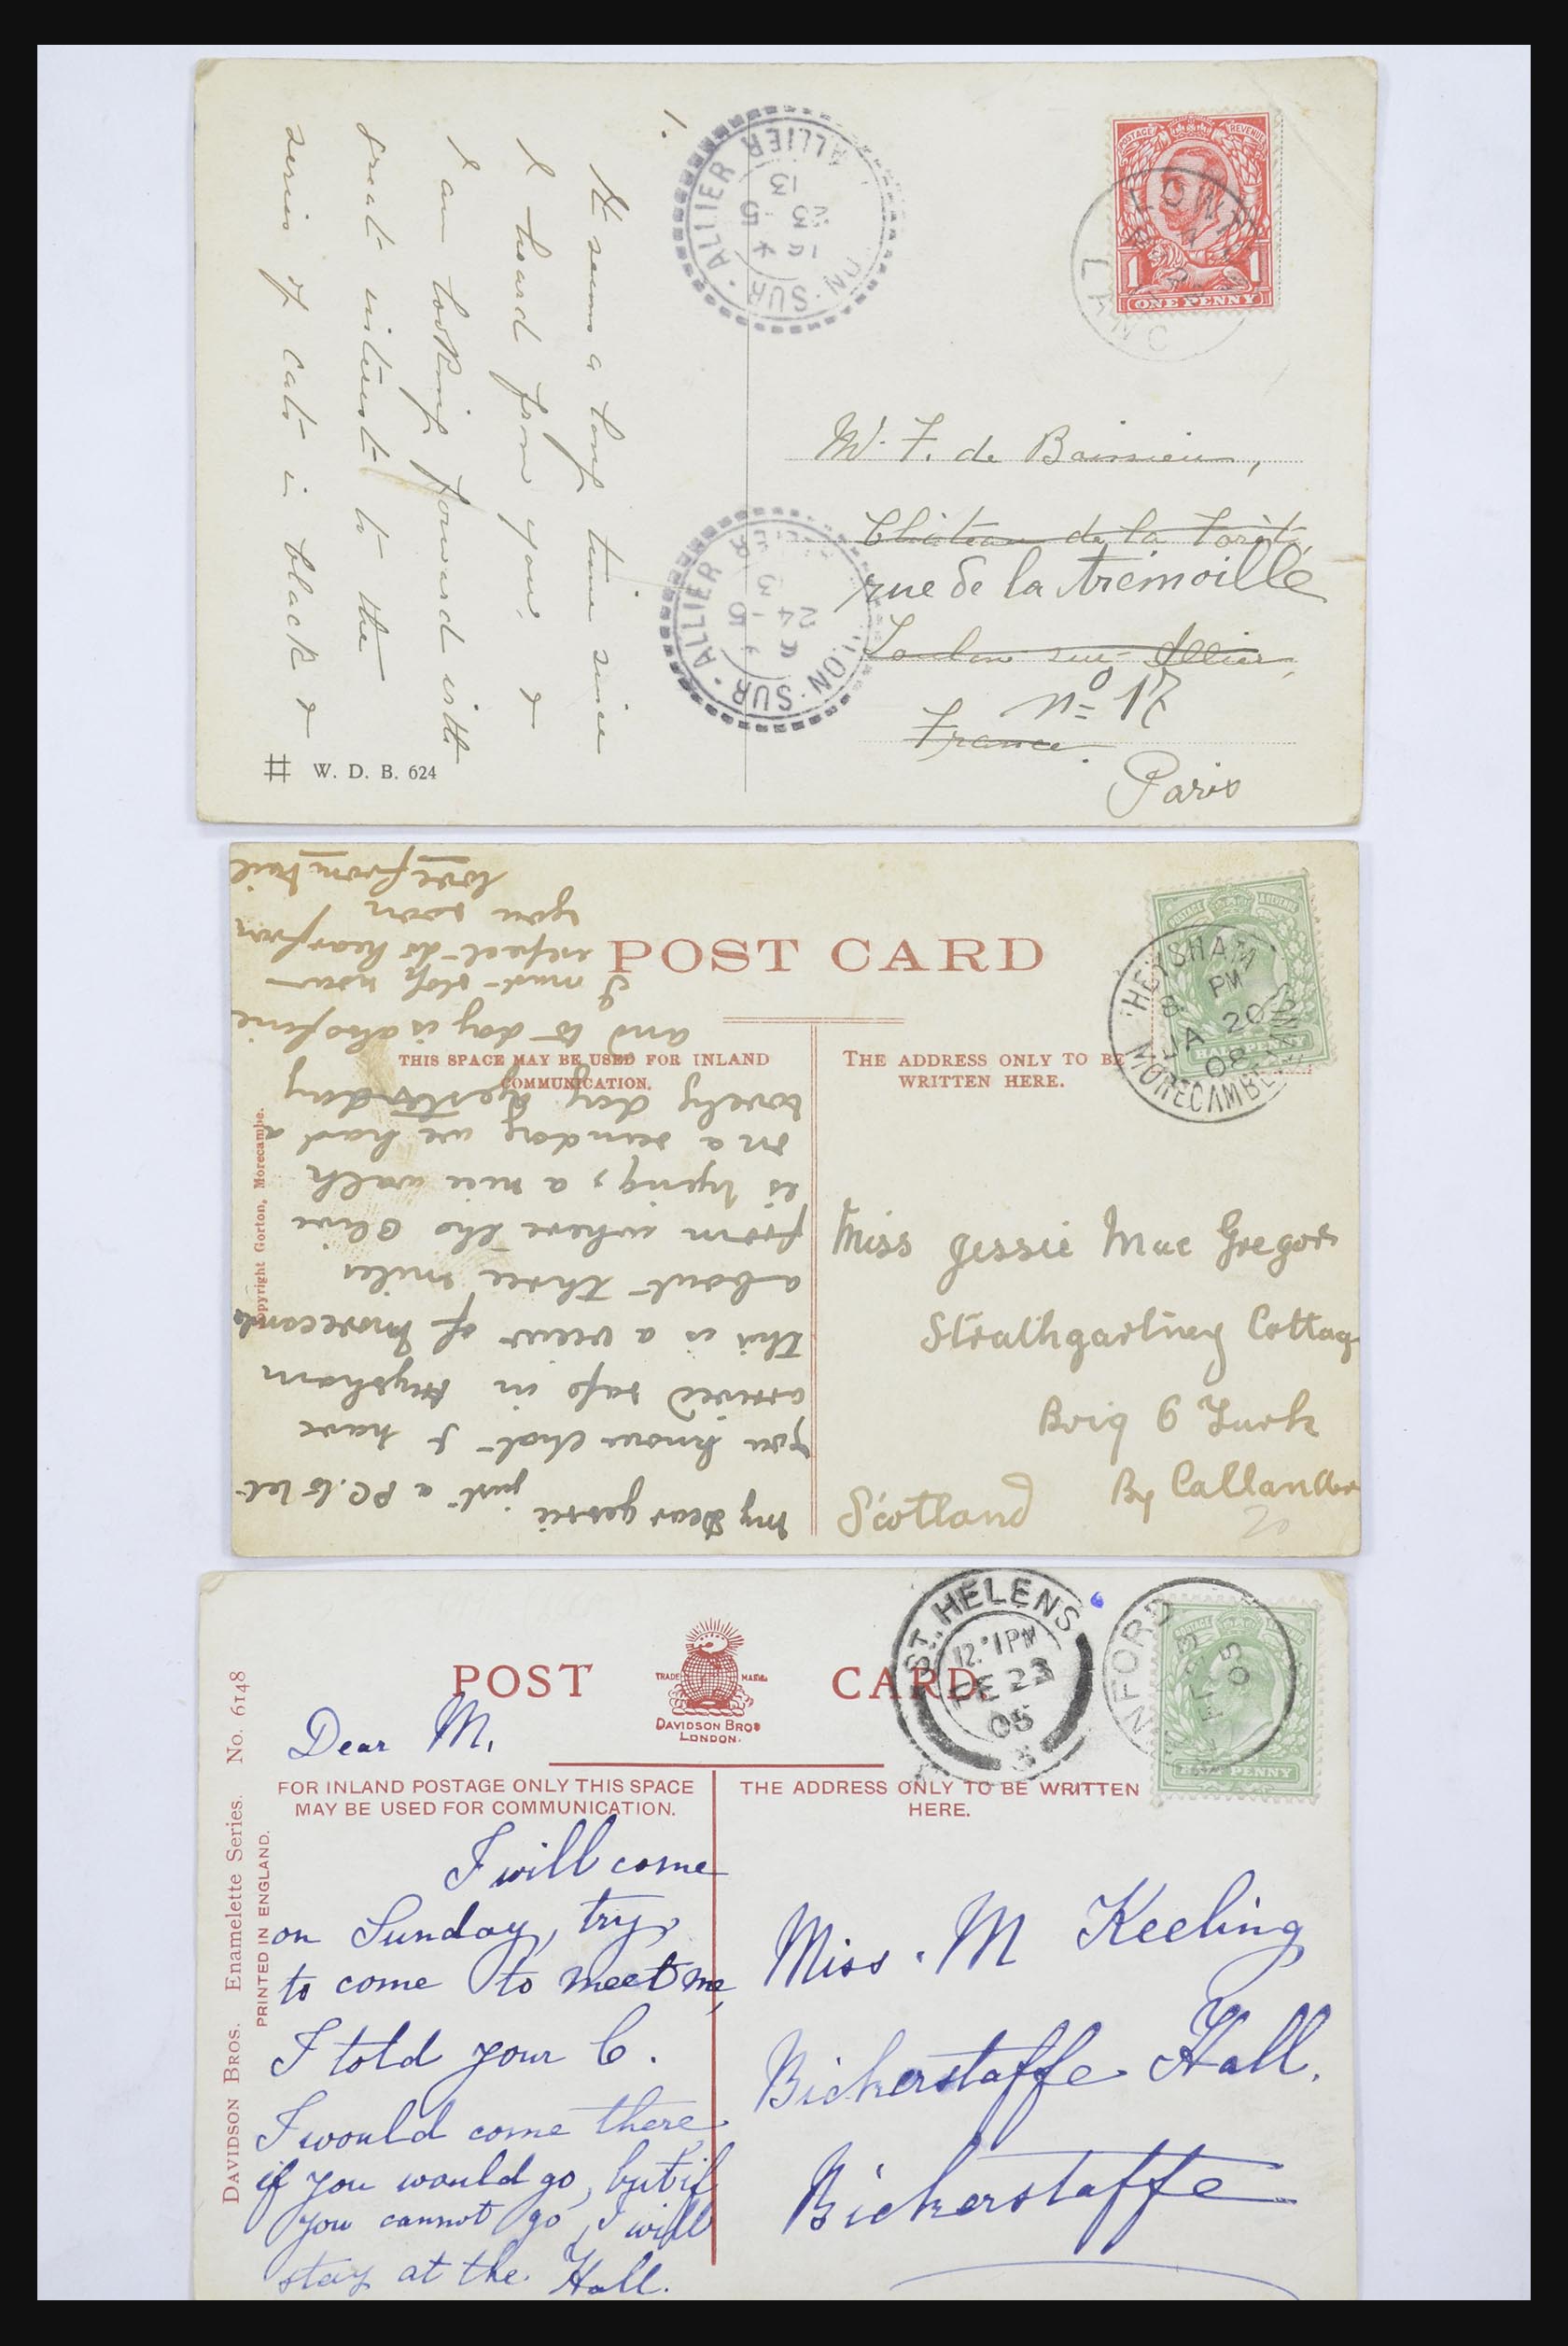 1.
It seems a long time since
I heard from you, &
I am looking forward with
great interest to the
series of cats in black &
# W. D. B. 624
ALLIER
SUR · ALLIER
23 - 5
13
SUR · ALLIER
24 - 5
13
POSTAGE REVENUE
1 1
ONE PENNY
LANC
Mr. F. de Boissieu,
Château de la Forêt,
rue de la trémoille
Toulon sur Allier,
nº 17
France.
Paris
POST CARD
THIS SPACE MAY BE USED FOR INLAND
COMMUNICATION.
THE ADDRESS ONLY TO BE
WRITTEN HERE.
Copyright Gorton, Morecambe.
POSTAGE REVENUE
HALFPENNY
HEYSHAM
8 PM
JA 20
08
MORECAMBE
My Dear Jessie just a P.C. to let
you know that I have
arrived safe in Heysham
this is a view of Morecambe
about three miles
from where the Olive
is lying, a nice walk
on a sunday we had a
lovely day yesterday
and to day is also fine
I must stop now
expect to hear from
you soon
love from
Miss Jessie Mac Gregor
Strathgartney Cottage
Brig O Turk
By Callander
Scotland
20
POST CARD
TRADE MARK.
DAVIDSON BROS
LONDON.
ST. HELENS
12.1PM
DE 23
05
3
NFORD
05
POSTAGE REVENUE
HALFPENNY
FOR INLAND POSTAGE ONLY THIS SPACE
MAY BE USED FOR COMMUNICATION.
THE ADDRESS ONLY TO BE WRITTEN
HERE.
DAVIDSON BROS. Enamelette Series. No. 6148
PRINTED IN ENGLAND.
Dear M,
I will come
on Sunday, try
to come to meet me,
I told your C.
I would come there
if you would go, but if
you cannot go, I will
stay at the Hall.
Miss. M Keeling
Bickerstaffe Hall.
Bickerstaffe